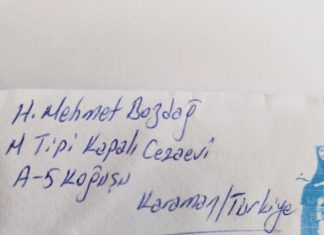 H. Mehmet Bozdağ
M Tipi Kapalı Cezaevi
A-5 Koğuşu
Karaman/Türkiye